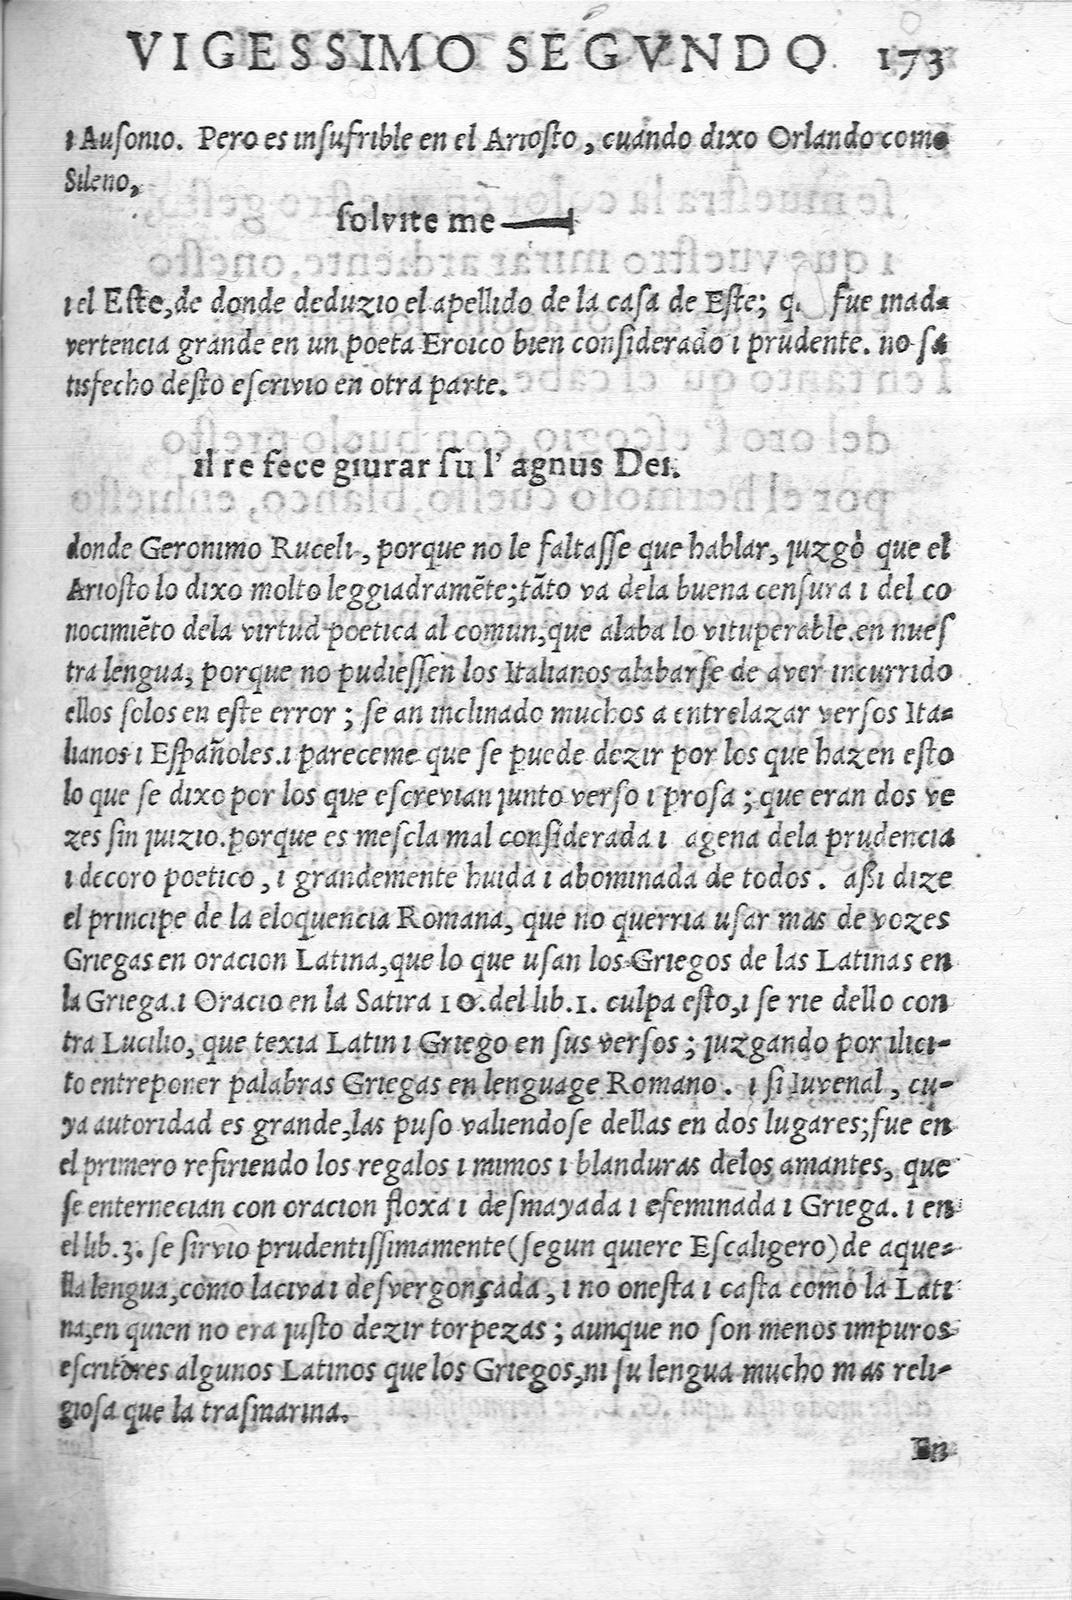 VIGESSIMO SEGVNDO. 173
ı Auſonıo. Pero es inſufrıble en el Arıoſto, cuando dıxo Orlando como
Sıleno,
ſolvıte me
ı el Eſte, de donde deduzıo el apellıdo de la caſa de Eſte; q. fue ınad-
vertencıa grande en un poeta Eroıco bıen conſıderado ı prudente. no ſa
tısfecho deſto eſcrıvıo en otra parte.
ıl re fece gıurar ſu l' agnus Deı.
donde Geronımo Rucelı, porque no le faltaſſe que hablar, ȷuzgò que el
Arıoſto lo dıxo molto leggıadramẽte; tãto va dela buena cenſura ı del co
nocımıẽto dela vırtud poetıca al comun, que alaba lo vıtuperable. en nueſ
tra lengua, porque no pudıeſſen los Italıanos alabarſe de aver ıncurrıdo
ellos ſolos en eſte error; ſe an ınclınado muchos a entrelazar verſos Ita-
lıanos ı Eſpañoles. ı pareceme que ſe puede dezır por los que hazen eſto
lo que ſe dıxo por los que eſcrevıan ȷunto verſo ı proſa; que eran dos ve
zes ſın ȷuızıo. porque es meſcla mal conſıderada ı agena dela prudencıa
ı decoro poetıco, ı grandemente huıda ı abomınada de todos. aßı dıze
el prıncıpe de la eloquencıa Romana, que no querrıa uſar mas de vozes
Grıegas en oracıon Latına, que lo que uſan los Grıegos de las Latınas en
la Grıega. ı Oracıo en la Satıra 10. del lıb. 1. culpa eſto, ı ſe rıe dello con
tra Lucılıo, que texıa Latın ı Grıego en ſus verſos; ȷuzgando por ılıcı-
to entreponer palabras Grıegas en lenguage Romano. ı ſı Iuvenal, cu-
ya autorıdad es grande, las puſo valıendoſe dellas en dos lugares; fue en
el prımero refırıendo los regalos ı mımos ı blanduras delos amantes, que
ſe enternecıan con oracıon floxa ı deſmayada ı efemınada ı Grıega. ı en
el lıb. 3. ſe ſırvıo prudentıſſımamente (ſegun quıere Eſcalıgero) de aque-
lla lengua, como lacıva ı deſvergonçada, ı no oneſta ı caſta como la Latı
na, en quıen no era ȷuſto dezır torpezas; aunque no ſon menos ımpuros
eſcrıtores algunos Latınos que los Grıegos, nı ſu lengua mucho mas relı-
gıoſa que la traſmarına.
En